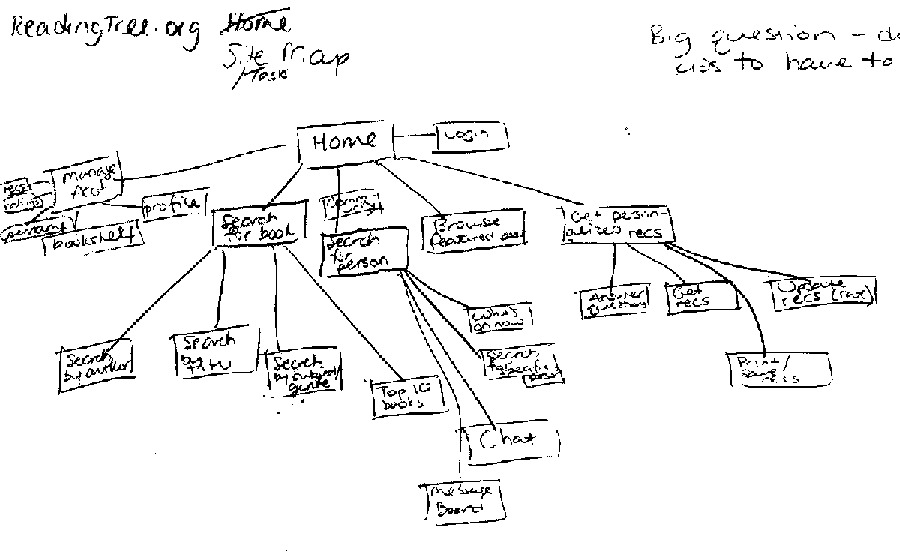 ReadingTree.org Home
Site Map
/Task
Big question - do
to have to
Home
Login
Manage
Acct
recs
ratings
profile
bookshelf
Search
for book
Search
for
person
Browse
featured
Get person-
alized recs
Search
by author
Search
by title
Search
by
genre
Top 10
books
Who's
on now
Search
specific
Chat
Message
Board
Answer
Get
recs
Update
recs (rate)
Print/
save
recs